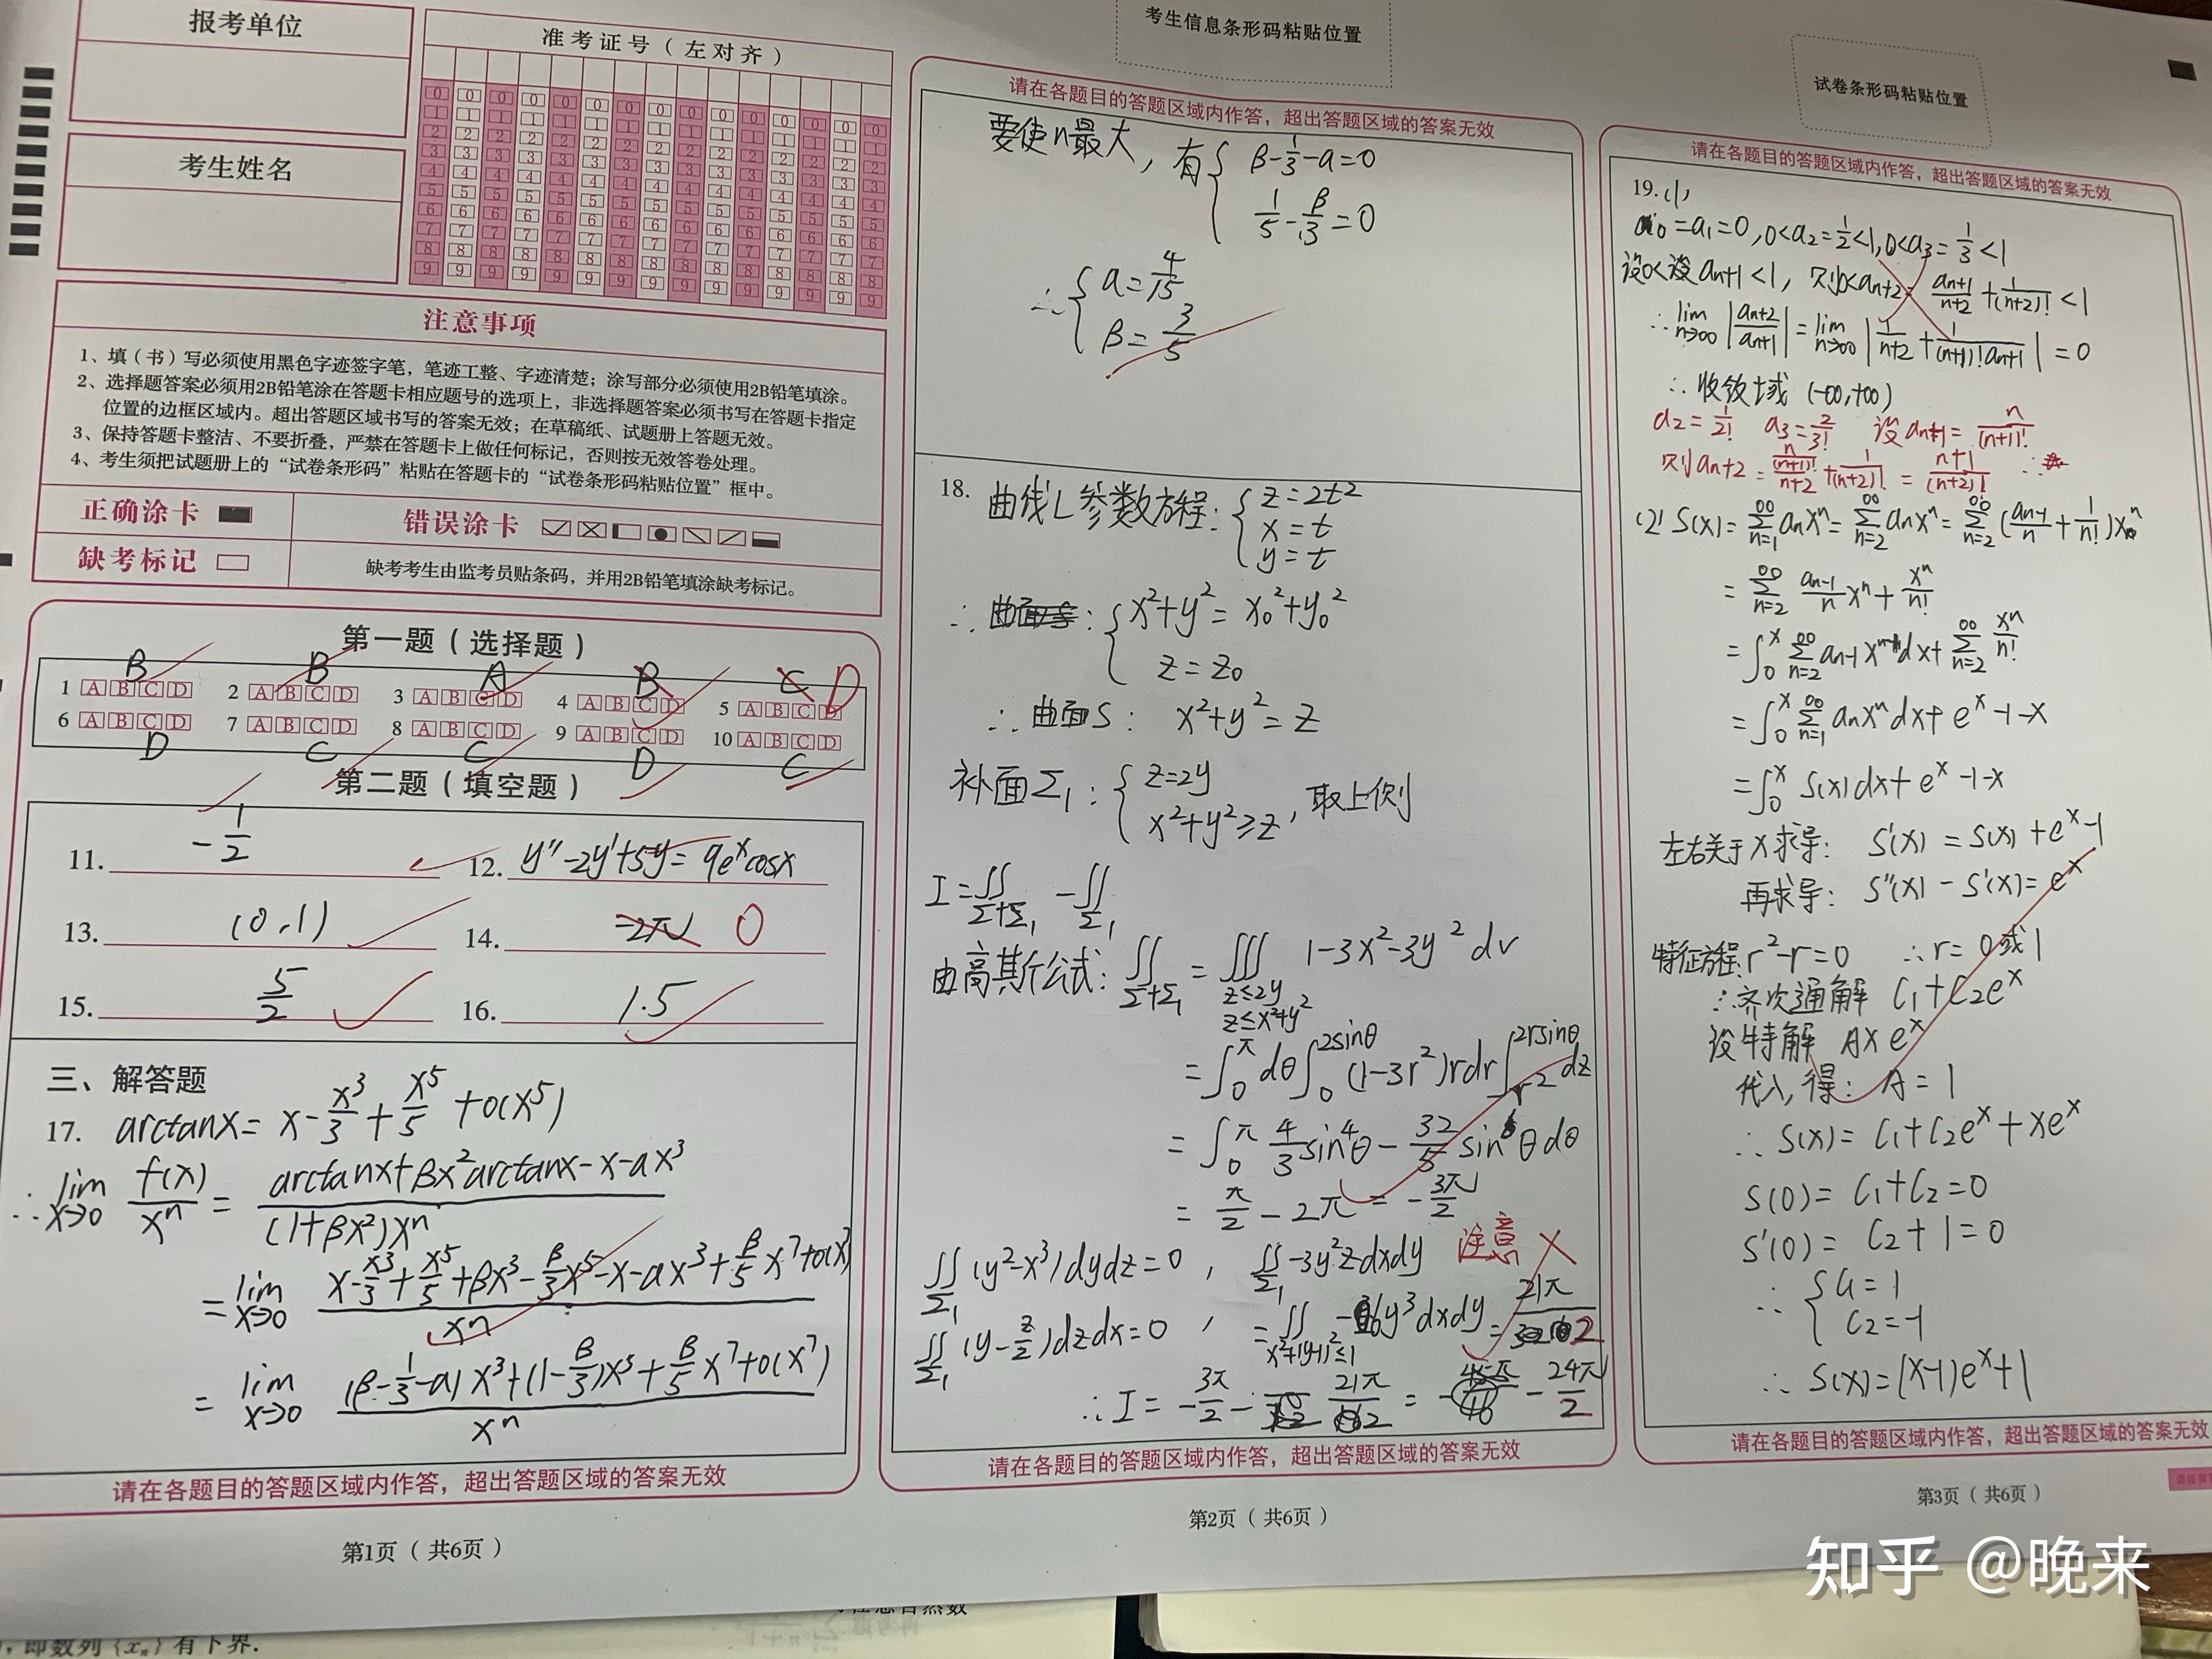 报考单位
考生姓名
准考证号（左对齐）
0 0 0 0 0 0 0 0 0 0 0 0 0 0 0
1 1 1 1 1 1 1 1 1 1 1 1 1 1 1
2 2 2 2 2 2 2 2 2 2 2 2 2 2 2
3 3 3 3 3 3 3 3 3 3 3 3 3 3 3
4 4 4 4 4 4 4 4 4 4 4 4 4 4 4
5 5 5 5 5 5 5 5 5 5 5 5 5 5 5
6 6 6 6 6 6 6 6 6 6 6 6 6 6 6
7 7 7 7 7 7 7 7 7 7 7 7 7 7 7
8 8 8 8 8 8 8 8 8 8 8 8 8 8 8
9 9 9 9 9 9 9 9 9 9 9 9 9 9 9
注意事项
1、填（书）写必须使用黑色字迹签字笔，笔迹工整、字迹清楚；涂写部分必须使用2B铅笔填涂。
2、选择题答案必须用2B铅笔涂在答题卡相应题号的选项上，非选择题答案必须书写在答题卡指定
位置的边框区域内。超出答题区域书写的答案无效；在草稿纸、试题册上答题无效。
3、保持答题卡整洁、不要折叠，严禁在答题卡上做任何标记，否则按无效答卷处理。
4、考生须把试题册上的“试卷条形码”粘贴在答题卡的“试卷条形码粘贴位置”框中。
正确涂卡 错误涂卡
缺考标记 缺考考生由监考员贴条码，并用2B铅笔填涂缺考标记。
第一题（选择题）
B B A B C D
1 A B C D 2 A B C D 3 A B C D 4 A B C D 5 A B C D
6 A B C D 7 A B C D 8 A B C D 9 A B C D 10 A B C D
D C C D C
第二题（填空题）
11. -1/2 12. y''-2y'+5y=9e^x cosx
13. (0,1) 14. -2π 0
15. 5/2 16. 1.5
三、解答题
17. arctanx= x-x³/3+x⁵/5+o(x⁵)
∴ lim x→0 f(x)/x^n = (arctanx+βx²arctanx-x-ax³)/((1+βx²)x^n)
= lim x→0 (x-x³/3+x⁵/5+βx³-β/3x⁵-x-ax³+β/5x⁷+o(x⁷))/x^n
= lim x→0 ((β-1/3-a)x³+(1-β/3)x⁵+β/5x⁷+o(x⁷))/x^n
请在各题目的答题区域内作答，超出答题区域的答案无效
第1页（共6页）
考生信息条形码粘贴位置
请在各题目的答题区域内作答，超出答题区域的答案无效
要使n最大，有{ β-1/3-a=0
1/5-β/3=0
∴{ a=4/15
β=3/5
18. 曲线L参数方程：{ z=2t²
x=t
y=t
∴ 曲面S：{ x²+y²=x₀²+y₀²
z=z₀
∴ 曲面S： x²+y²=z
补面Σ₁：{ z=2y
x²+y²≥z ，取上侧
I=∬Σ+Σ₁ -∬Σ₁
由高斯公式：∬Σ+Σ₁ = ∭ 1-3x²-3y² dv
z≤2y
z≤x²+y²
=∫₀^π dθ∫₀^2sinθ (1-3r²)rdr∫r²^2rsinθ dz
=∫₀^π 4/3sin⁴θ-32/5sin⁶θdθ
= π/2-2π = -3π/2
注意
∬Σ₁(y²-x³)dydz=0 ， ∬Σ₁-3y²zdxdy
∬Σ₁(y-z/2)dzdx=0 ， =∬x²+(y-1)²≤1 -6y³dxdy= 21π/2
∴I= -3π/2 - 21π/2 = - 24π/2
请在各题目的答题区域内作答，超出答题区域的答案无效
第2页（共6页）
试卷条形码粘贴位置
请在各题目的答题区域内作答，超出答题区域的答案无效
19.(1)
a₀=a₁=0,0<a₂=1/2<1,0<a₃=1/3<1
设0<an+1<1，则0<an+2= an+1/n+2+1/(n+2)!<1
∴ lim n→∞ |an+2/an+1|=lim n→∞ |1/n+2+1/(n+1)!an+1|=0
∴ 收敛域 (-∞,+∞)
a₂=1/2! a₃=2/3! 设an+1=n/(n+1)!
则an+2= n/(n+1)!/n+2+1/(n+2)!=n+1/(n+2)! ∴
(2) S(x)=∑n=1^∞ anx^n=∑n=2^∞ anx^n=∑n=2^∞(an-1/n+1/n!)x^n
=∑n=2^∞ an-1/n x^n+x^n/n!
=∫₀^x ∑n=2^∞ an-1x^n-1dx+∑n=2^∞ x^n/n!
=∫₀^x ∑n=1^∞ anx^n dx+e^x-1-x
=∫₀^x S(x)dx+e^x-1-x
左右关于x求导： S'(x)=S(x)+e^x-1
再求导： S''(x)-S'(x)=e^x
特征方程：r²-r=0 ∴r=0或1
∴齐次通解 C₁+C₂e^x
设特解 Axe^x
代入,得：A=1
∴ S(x)=C₁+C₂e^x+xe^x
S(0)=C₁+C₂=0
S'(0)= C₂+1=0
∴{ C₁=1
C₂=-1
∴ S(x)=(x-1)e^x+1
请在各题目的答题区域内作答，超出答题区域的答案无效
第3页（共6页）
知乎 @晚来
，即数列{xn}有下界.